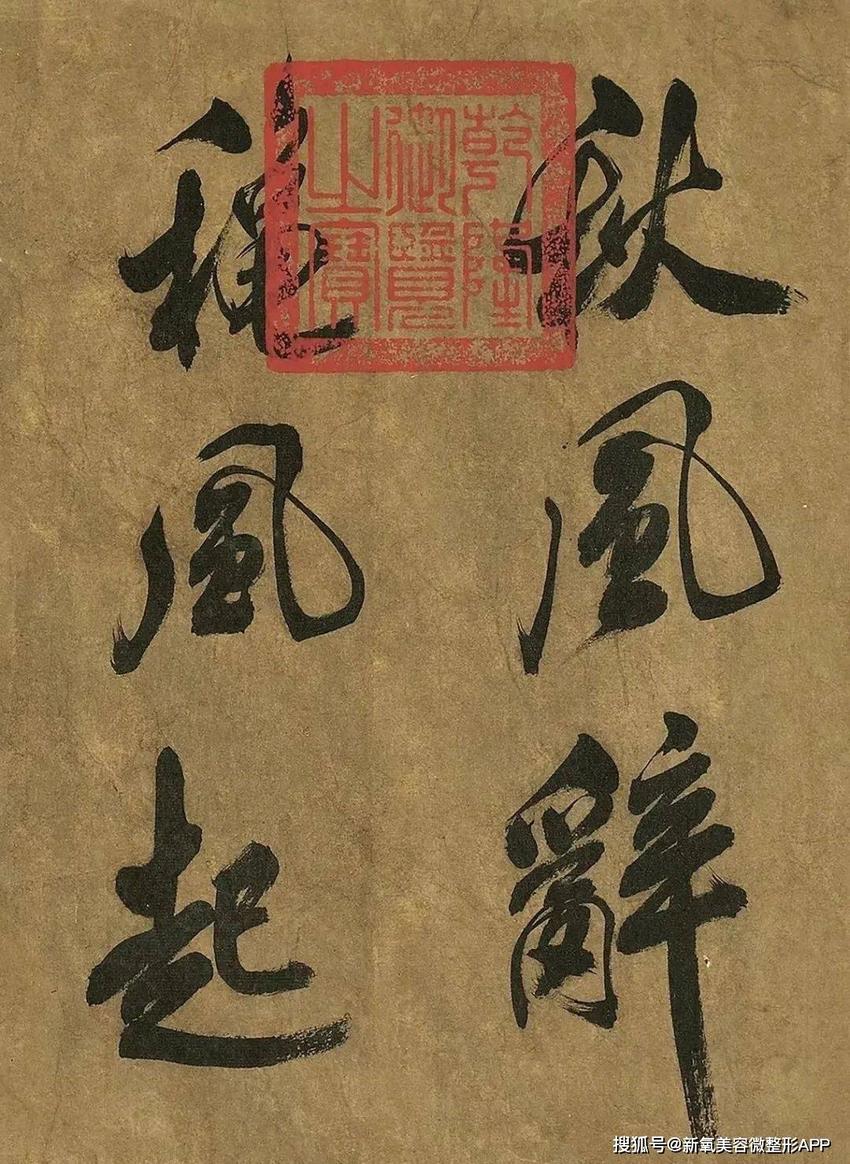 秋風辭
穐風起
乾隆
御覽
之寶
搜狐号@新氧美容微整形APP